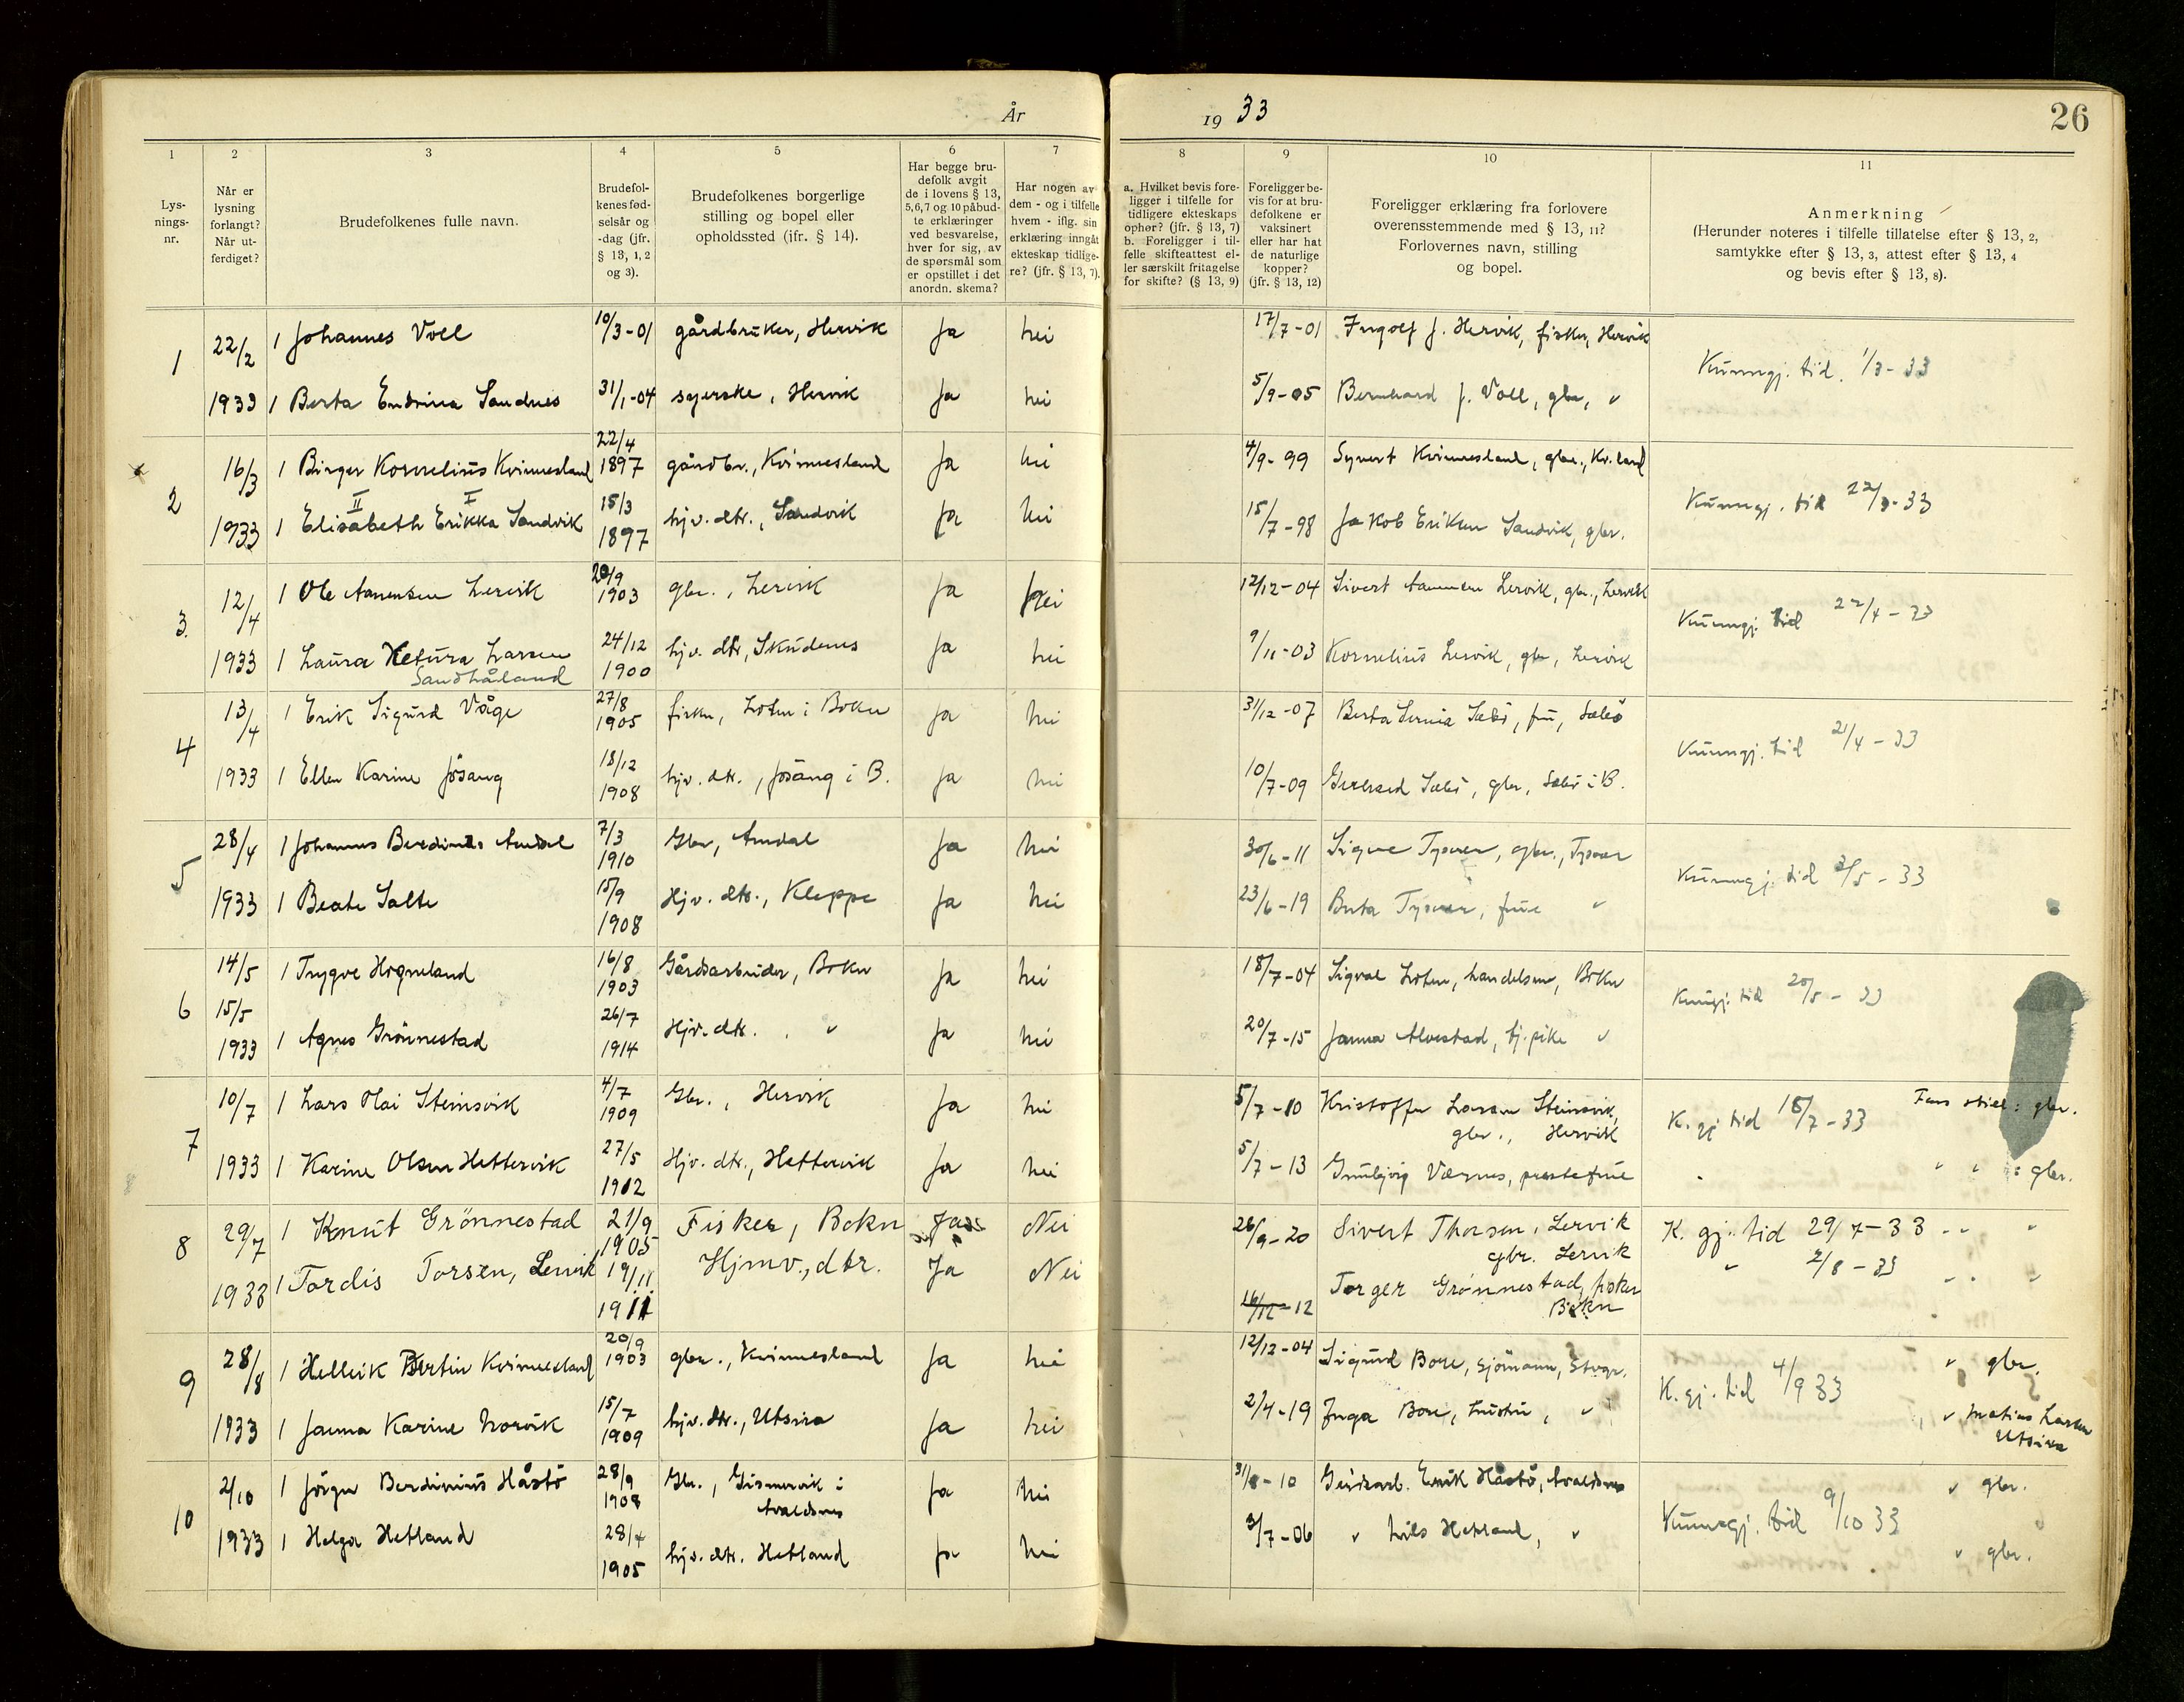 År 19 33
26
1 2 3 4 5 6 7 8 9 10 11
Lys-
nings-
nr.
Når er
lysning
forlangt?
Når ut-
ferdiget?
Brudefolkenes fulle navn.
Brudefol-
kenes fød-
selsår og
-dag (jfr.
§ 13, 1, 2
og 3).
Brudefolkenes borgerlige
stilling og bopel eller
opholdssted (jfr. § 14).
Har begge bru-
defolk avgit
de i lovens § 13,
5,6,7 og 10 påbud-
te erklæringer
ved besvarelse,
hver for sig, av
de spørsmål som
er opstillet i det
anordn. skema?
Har nogen av
dem - og i tilfelle
hvem - iflg. sin
erklæring inngåt
ekteskap tidlige-
re? (jfr. § 13, 7).
a. Hvilket bevis fore-
ligger i tilfelle for
tidligere ekteskaps
ophør? (jfr. § 13, 7)
b. Foreligger i til-
felle skifteattest el-
ler særskilt fritagelse
for skifte? (§ 13, 9)
Foreligger be-
vis for at bru-
defolkene er
vaksinert
eller har hat
de naturlige
kopper?
(jfr. § 13, 12)
Foreligger erklæring fra forlovere
overensstemmende med § 13, 11?
Forlovernes navn, stilling
og bopel.
Anmerkning
(Herunder noteres i tilfelle tillatelse efter § 13, 2,
samtykke efter § 13, 3, attest efter § 13, 4
og bevis efter § 13, 8).
1 22/2 1 Johannes Voll 10/3-01 gårdbruker, Hervik Ja nei 17/7-01 Ingolf J. Hervik, fisker, Hervik
Kunngj. tid. 1/3-33
1933 1 Berta Endrina Sandnes 31/1-04 syerske, Hervik Ja nei 5/9-05 Bernhard J. Voll, gbr, "
2 16/3 1 Birger Kornelius Kvinnesland 22/4 1897 gårdbr., Kvinnesland Ja nei 4/9-99 Syvert Kvinnesland, gbr., Kv.land
II I
Kunngj. tid 22/3-33
1933 1 Elisabeth Erikka Sandvik 15/3 1897 hjv. dtr., Sandvik Ja nei 15/7-98 Jakob Eriksen Sandvik, gbr.
3 12/4 1 Ole Aanensen Lervik 20/9 1903 gbr., Lervik Ja Nei 12/12-04 Sivert Aanensen Lervik, gbr., Lervik
Kunngj. tid 22/4-33
1933 1 Laura Ketura Larsen 24/12 1900 hjv. dtr, Skudenes Ja nei 9/11-03 Kornelius Lervik, gbr, Lervik
Sandhåland
4 13/4 1 Erik Sigurd Våge 27/8 1905 fisker, Loten i Bokn Ja nei 31/12-07 Berta Sæbö, fru, Sæbö
Kunngj. tid 21/4-33
1933 1 Ellen Karine Jösang 18/12 1908 hjv. dtr., Jösang i B. Ja nei 10/7-09 Gerhard Sæbö, gbr, Sæbö i B.
5 28/4 1 Johannes Berdines Amdal 7/3 1910 Gbr, Amdal Ja nei 30/6-11 Signe Tysver, gbr., Tysver
Kunngj. tid 3/5-33
1933 1 Beate Salte 15/9 1908 Hjv. dtr., Kleppe Ja nei 23/6-19 Berta Tysver, frue "
6 14/5 1 Trygve Hogneland 16/8 1903 Gårdsarbeider, Bokn Ja nei 18/7-04 Sigval Loten, handelsm, Bokn
15/5
Kungj. tid 20/5-33
1933 1 Agnes Grönnestad 26/7 1914 Hjv. dtr., " Ja nei 20/7-15 Janna Alvestad, tj.pike "
7 10/7 1 Lars Mai Steinsvik 4/7 1909 Gbr., Hervik Ja nei 5/7-10 Kristoffer Larsen Steinsvik,
gbr., Hervik
K. gj tid 18/7-33 Fars still: gbr.
1933 1 Karine Olsen Hettervik 27/5 1912 Hjv. dtr., Hettervik Ja nei 5/7-13 Værnes, prestefrue " " : gbr.
8 29/7 1 Knut Grönnestad 21/9 1905 Fisker, Bokn Ja Nei 26/9-20 Sivert Thorsen, Lervik
gbr. Lervik
K. gj. tid 29/7-33 " " "
1933 1 Tordis Torsen, Lervik 19/11 1911 Hjmv., dtr. Ja Nei 16/12-12 Torger Grønnestad, fisker
Bokn
" 2/8-33 " " "
9 28/8 1 Helleik Bertin Kvinnesland 20/9 1903 gbr., Kvinnesland Ja nei 12/12-04 Sigurd Bore, sjömann, Stvgr.
K. gj. tid 4/9 33 " gbr.
1933 1 Janna Karine Norvik 15/7 1909 hjv. dtr., Utsira Ja nei 2/4-19 Inga Bore, hustru, " " Matias Larsen
Utsira
10 2/10 1 Jörgen Berdinius Håstö 28/9 1908 Gbr., Gismervik i
Avaldsnes
Ja nei 31/8-10 Gårdsarb. Erik Håstö, Avaldsnes " gbr.
Kunngj. tid 9/10 33
1933 1 Helga Hetland 28/4 1905 hjv. dtr. Hetland Ja nei 3/7-06 " Nils Hetland, " " gbr.